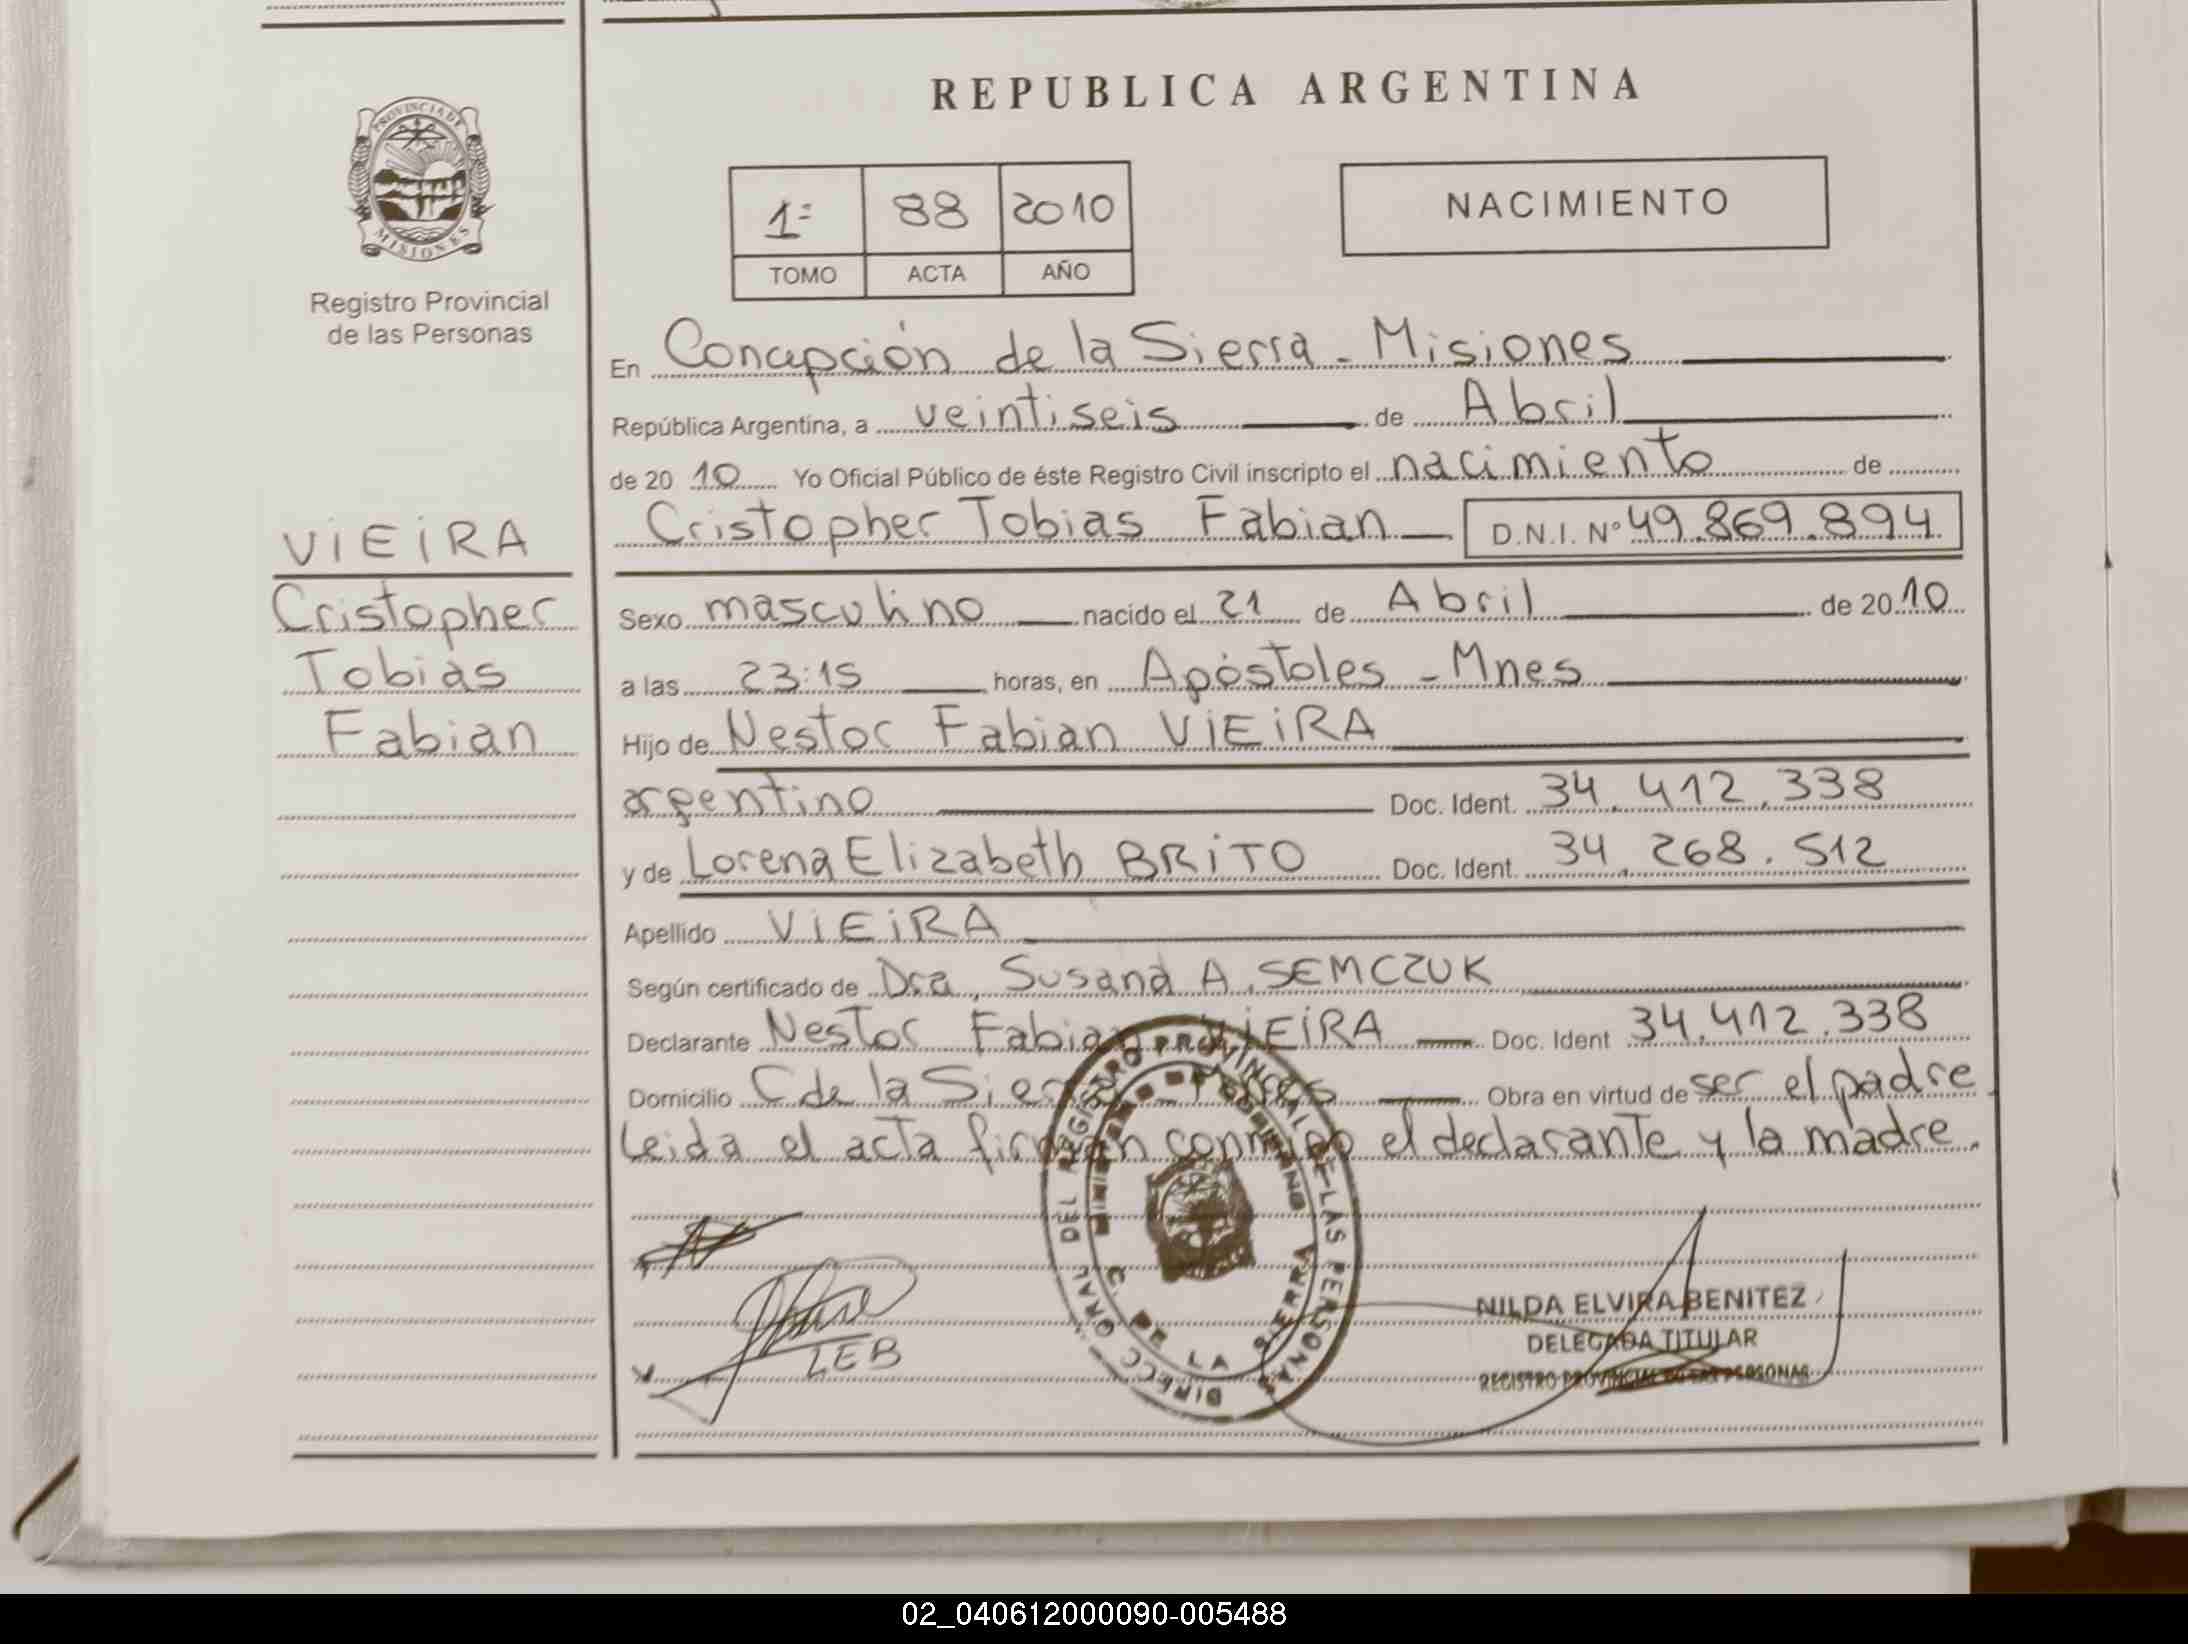 PROVINCIA DE
MISIONES
Registro Provincial
de las Personas
VIEIRA
Cristopher
Tobias
Fabian
REPUBLICA ARGENTINA
1º 88 2010
TOMO ACTA AÑO
NACIMIENTO
En Concepción de la Sierra - Misiones
República Argentina, a veintiseis de Abril
de 20 10 Yo Oficial Público de éste Registro Civil inscripto el nacimiento de
Cristopher Tobias Fabian D.N.I. Nº 49.869.894
Sexo masculino nacido el 21 de Abril de 20 10
a las 23:15 horas, en Apóstoles - Mnes
Hijo de Nestor Fabian VIEIRA
argentino Doc. Ident. 34.412.338
y de Lorena Elizabeth BRITO Doc. Ident. 34.268.512
Apellido VIEIRA
Según certificado de Dra. Susana A. SEMCZUK
Declarante Nestor Fabian VIEIRA Doc. Ident 34.412.338
Domicilio C de la Sierra - Mnes Obra en virtud de ser el padre
Leida el acta firman conmigo el declarante y la madre.
DIRECC GRAL DEL REGISTRO PROVINCIAL DE LAS PERSONAS
MINISTERIO DE GOBIERNO
C. DE LA SIERRA
LEB
NILDA ELVIRA BENITEZ
DELEGADA TITULAR
REGISTRO PROVINCIAL DE LAS PERSONAS
02_040612000090-005488